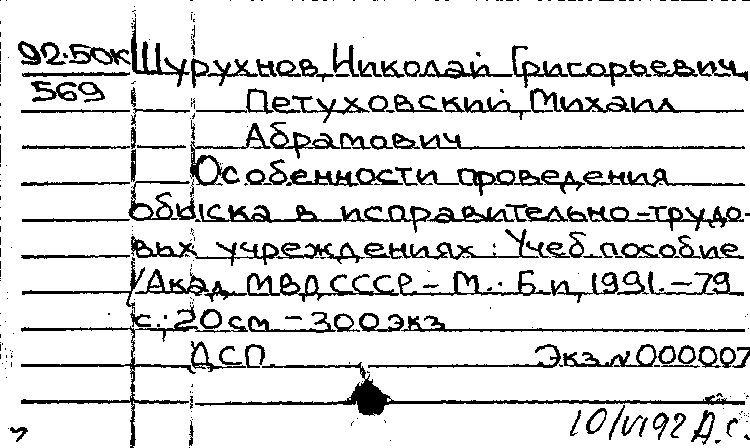 92-50К Шурухнов, Николай Григорьевич,
569
Петуховский, Михаил
Абрамович
Особенности проведения
обыска в исправительно-трудо-
вых учреждениях: Учеб. пособие
/Акад. МВД СССР. - М.: Б.и, 1991. - 79
с.; 20 см - 300 экз
ДСП Экз. № 000007
10/VI 92 Д.С.